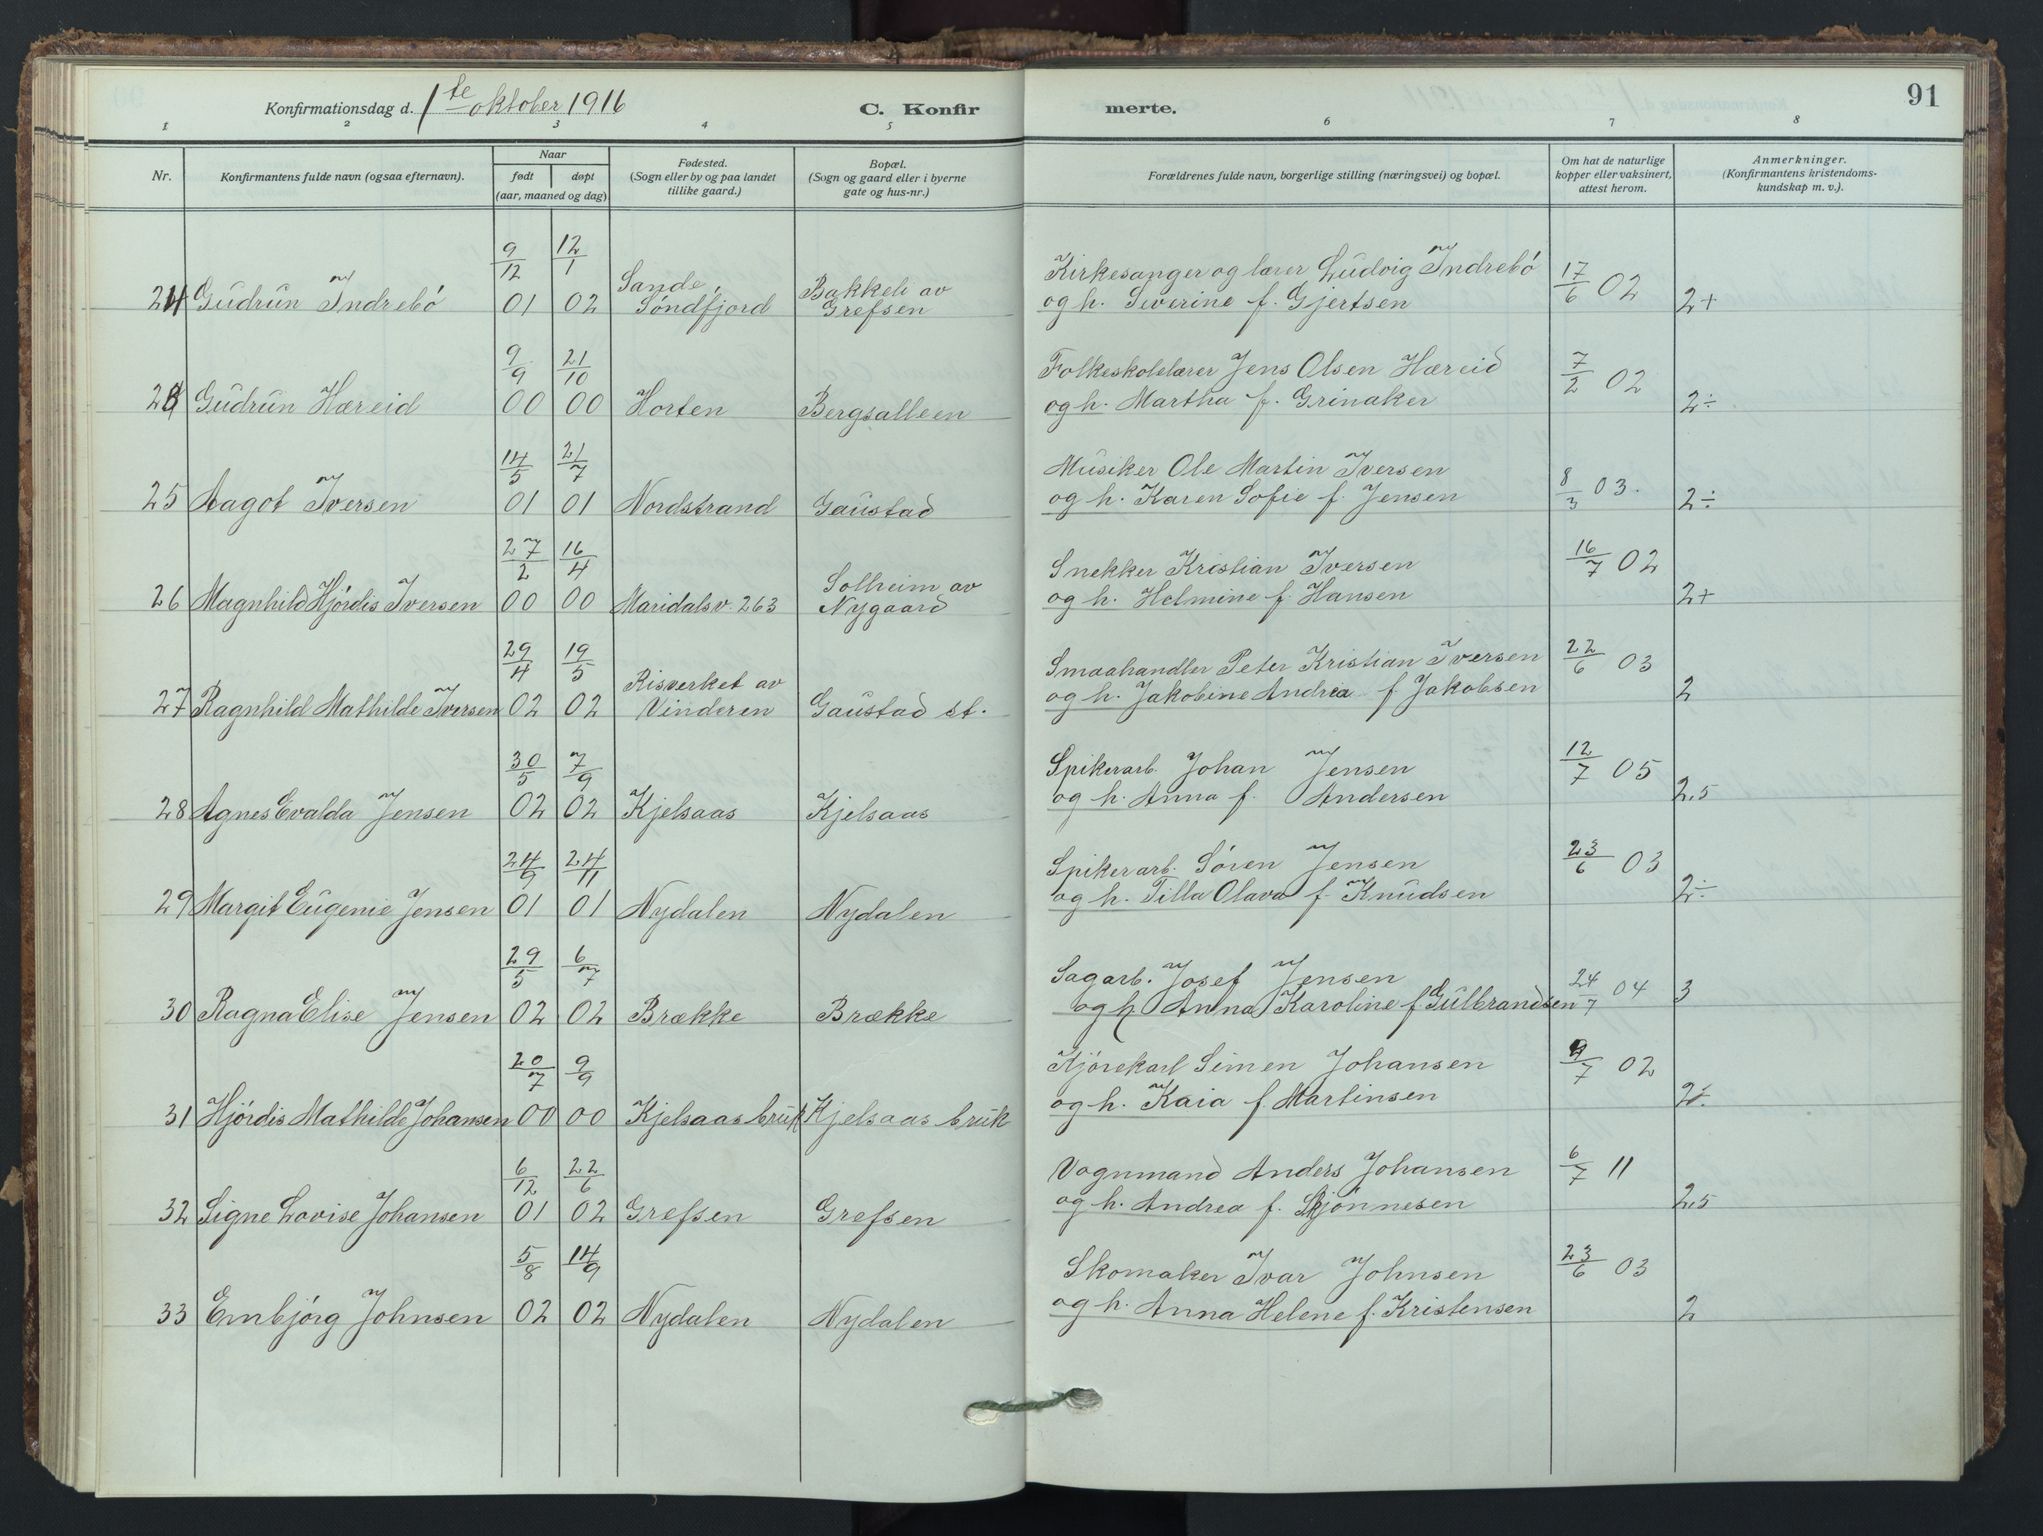 Konfirmationsdag d. 1ste oktober 1916
C. Konfir merte.
91
1 2 3 4 5 6 7 8
Nr.
Konfirmantens fulde navn (ogsaa efternavn).
Naar
født døpt
(aar, maaned og dag)
Fødested.
(Sogn eller by og paa landet
tillike gaard.)
Bopæl.
(Sogn og gaard eller i byerne
gate og hus-nr.)
Forældrenes fulde navn, borgerlige stilling (næringsvei) og bopæl.
Om hat de naturlige
kopper eller vaksinert,
attest herom.
Anmerkninger.
(Konfirmantens kristendoms-
kundskap m. v.).
9/12 12/1 Sande, Bakkeli av Kirkesanger og lærer Ludvig Indrebó 17/6 02
Gudrun Indrebó 01 02 Søndfjord Grefsen og h. Severine f. Gjertsen 2+
9/9 21/10 Folkeskolelærer Jens Olsen Hæreid 7/2 02
Gudrun Hæreid 00 00 Horten Bergsalleen og h. Martha f. Grinaker 2÷
14/5 21/7 Musiker Ole Martin Iversen 8/3 03.
25 Aagot Iversen 01 01 Nordstrand Gaustad og h. Karen Sofie f. Jensen 2÷
27/2 16/4 Solheim av Snekker Kristian Iversen 16/7 02
26 Magnhild Hjórdis Iversen 00 00 Maridalsv. 263 Nygaard og h. Helmine f. Hansen 2+
29/4 19/5 Risverket av Smaahandler Peter Kristian Iversen 22/6 03
27 Ragnhild Mathilde Iversen 02 02 Vinderen Gaustad st. og h. Jakobine Andrea f Jakobsen 2
30/5 7/9 Spikerarb. Johan Jensen 12/7 05
28 Agnes Evalda Jensen 02 02 Kjelsaas Kjelsaas og h. Anna f. Andersen 2,5
24/9 24/11 Spikerarb. Sóren Jensen 23/6 03
29 Margit Eugenie Jensen 01 01 Nydalen Nydalen og h. Tilla Olava f. Knudsen 2÷
29/5 6/7 Sagarb. Josef Jensen 24/7 04 3
30 Ragna Elise Jensen 02 02 Brække Brække og h Anna Karoline f Gulbrandsen
20/7 9/9 Kjórekarl Simen Johansen 9/7 02
31 Hjórdis Mathilde Johansen 00 00 Kjelsaas bruk Kjelsaas bruk og h. Kaia f. Martinsen 2÷
6/12 22/6 Vognmand Anders Johansen 6/7 11
32 Signe Lovise Johansen 01 02 Grefsen Grefsen og h. Andrea f. 2,5
5/8 14/9 Skomaker Ivar Johnsen 23/6 03
33 Embjórg Johnsen 02 02 Nydalen Nydalen og h. Anna Helene f. Kristensen 2